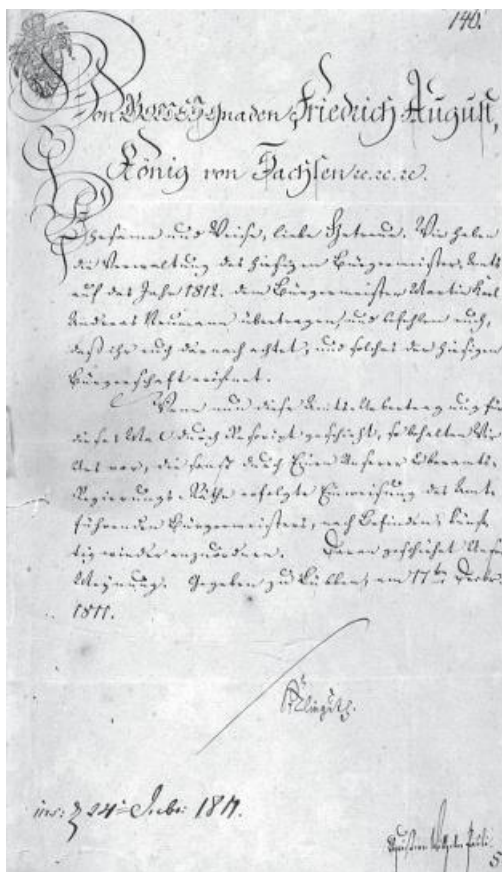 140.
Von GOTTES Gnaden Friedrich August,
König von Sachsen ꝛc. ꝛc. ꝛc.
Ehrsame und Weise, liebe Getreue. Wir haben
die Verwaltung des hiesigen Bürgermeister-Amts
auf das Jahr 1812. dem Bürgermeister Martin Karl
Andreas Neumann übertragen, und befehlen euch,
daß ihr euch darnach achtet, und solches der hiesigen
Bürgerschaft eröfnet.
Wenn nun diese Amts-Uebertragung für
dieses Mal durch Rescript geschieht, so behalten Wir
Uns vor, die sonst durch Einen Unserer Oberamts-
Regierungs-Räthe erfolgte Einweisung des Amts-
führenden Bürgermeisters, nach Befinden, künf-
tig wieder anzuordnen. Daran geschiehet Unsre
Meynung. Gegeben zu Lübben, am 17ten Decbr.
1811.
ins: 24 1811.
Wilhelm